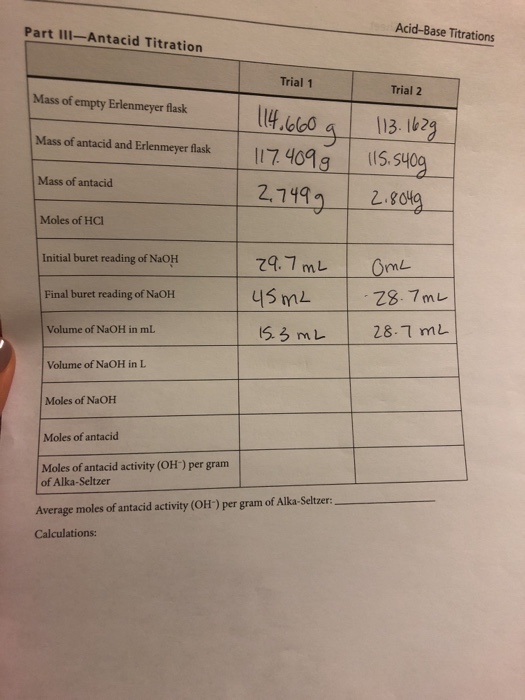 Acid–Base Titrations
Part III—Antacid Titration
Trial 1 Trial 2
Mass of empty Erlenmeyer flask 114.660 g 113.162g
Mass of antacid and Erlenmeyer flask 117.409g 115.540g
Mass of antacid 2.749g 2.804g
Moles of HCl
Initial buret reading of NaOH 29.7 mL 0mL
Final buret reading of NaOH 45mL 28.7mL
Volume of NaOH in mL 15.3 mL 28.7 mL
Volume of NaOH in L
Moles of NaOH
Moles of antacid
Moles of antacid activity (OH⁻) per gram
of Alka-Seltzer
Average moles of antacid activity (OH⁻) per gram of Alka-Seltzer:
Calculations: